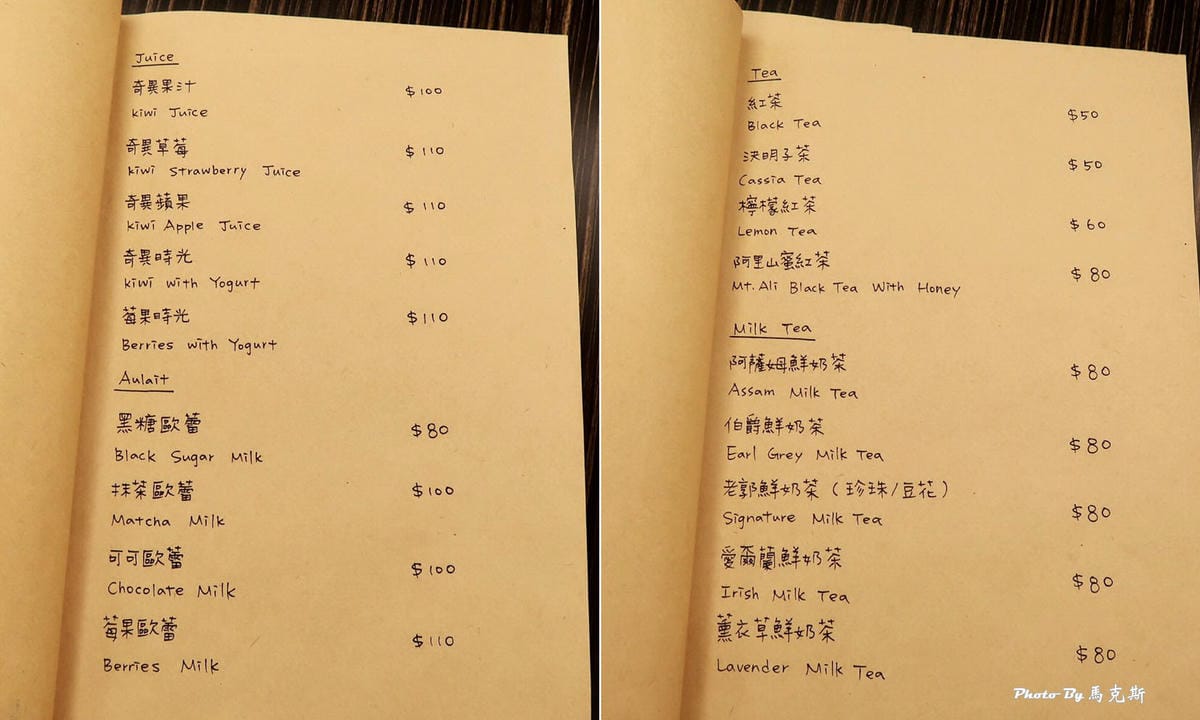 Juice
奇異果汁 $100
kiwi Juice
奇異草莓 $110
kiwi Strawberry Juice
奇異蘋果 $110
kiwi Apple Juice
奇異時光 $110
kiwi with Yogurt
莓果時光 $110
Berries with Yogurt
Aulait
黑糖歐蕾 $80
Black Sugar Milk
抹茶歐蕾 $100
Matcha Milk
可可歐蕾 $100
Chocolate Milk
莓果歐蕾 $110
Berries Milk
Tea
紅茶 $50
Black Tea
決明子茶 $50
Cassia Tea
檸檬紅茶 $60
Lemon Tea
阿里山蜜紅茶 $80
Mt.Ali Black Tea With Honey
Milk Tea
阿薩姆鮮奶茶 $80
Assam Milk Tea
伯爵鮮奶茶 $80
Earl Grey Milk Tea
老郭鮮奶茶（珍珠/豆花） $80
Signature Milk Tea
愛爾蘭鮮奶茶 $80
Irish Milk Tea
薰衣草鮮奶茶 $80
Lavender Milk Tea
Photo By 馬克斯